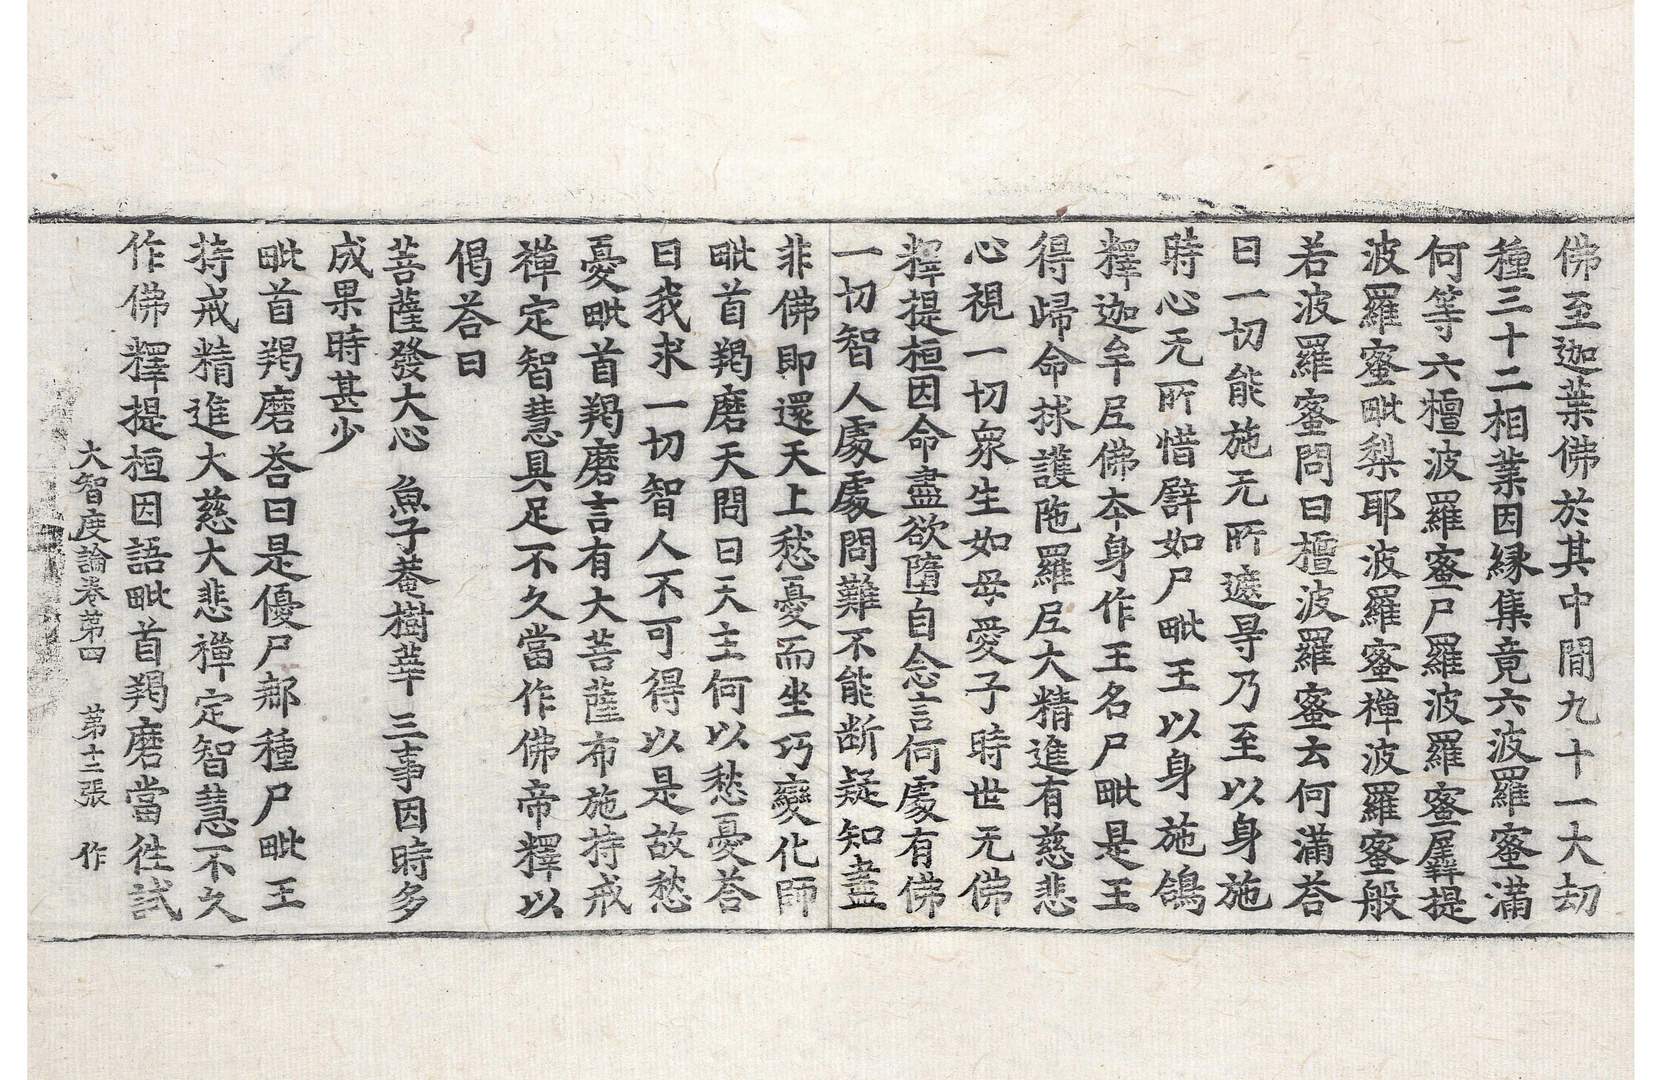 佛至迦葉佛於其中間九十一大劫
種三十二相業因緣集竟六波羅蜜滿
何等六檀波羅蜜尸羅波羅蜜羼提
波羅蜜毗梨耶波羅蜜禪波羅蜜般
若波羅蜜問曰檀波羅蜜云何滿荅
曰一切能施无所遮㝵乃至以身施
時心无所惜譬如尸毗王以身施鴿
釋迦牟尼佛本身作王名尸毗是王
得歸命救護陁羅尼大精進有慈悲
心視一切衆生如母愛子時世无佛
釋提桓因命盡欲墮自念言何處有佛
一切智人處處問難不能斷疑知盡
非佛即還天上愁憂而坐巧變化師
毗首羯磨天問曰天主何以愁憂荅
曰我求一切智人不可得以是故愁
憂毗首羯磨言有大菩薩布施持戒
禪定智慧具足不久當作佛帝釋以
偈荅曰
菩薩發大心 魚子菴樹華 三事因時多
成果時甚少
毗首羯磨荅曰是優尸䣊種尸毗王
持戒精進大慈大悲禪定智慧不久
作佛釋提桓因語毗首羯磨當徃試
大智度論卷苐四 苐十二張 作